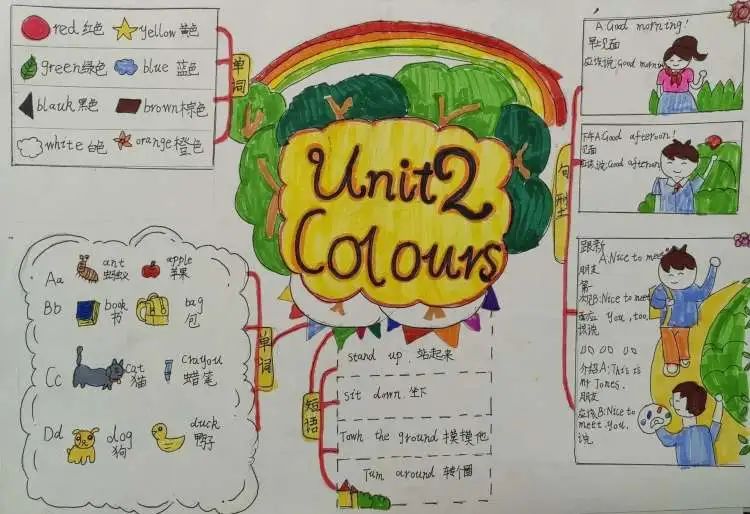 red 红色 yellow 黄色
green 绿色 blue 蓝色
blauk 黑色 brown 棕色
white 白色 orange 橙色
单词
Unit 2
Colours
Aa ant 蚂蚁 apple 苹果
Bb book 书 bag 包
Cc cat 猫 crayou 蜡笔
Dd dog 狗 duck 鸭子
单词
短语
stand up 站起来
sit down 坐下
Towh the ground 摸摸地
Turn around 转个圈
句型
A: Good morning!
早上见面
应该说: Good morn
下午 A: Good afteroon!
见面
应该说: Good afternoon
跟新 A: Nice to meet
朋友
第一
次 B: Nice to meet
面应 you, too.
该说
介绍 A: This is
朋友 Mr Jones.
应该 B: Nice to
说 meet you.